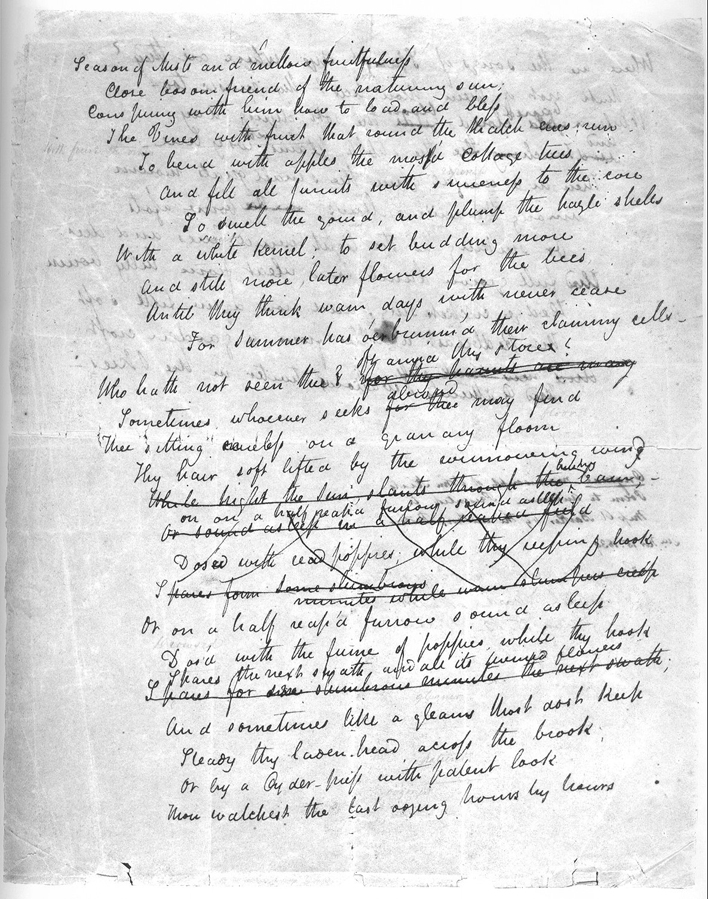 Season of Mists and mellow fruitfulness
Close bosom friend of the naturring sun;
Conspiring with him how to load and bless
The Vines with fruit that round the thatch eves run
To bend with apples the moss'd Cottage trees
And fill all furuits with sweeness to the core
To swell the gourd, and plump the hazle shells
With a white kernel; to set budding more
And still more later flowers for the bees
Until they think wam days with never cease
For Summer has o'erbrimm'd their clammy cells—
oft amid thy stores?
Who hath not seen thee? for thy haunts are many
abroad
Sometimes whoever seeks for thee may find
Thee sitting careless on a granary floor
Thy hair soft lifted by the winnowing wind
While bright the Sun slants through the barn
on on a half reap'd furrow sound asleep
Or sound asleep in a half reaped field
Dosed with read poppies; while thy reeping hook
Spares form some slumbrous
minutes while wam slumpers creep
Or on a half reap'd furrow sound asleep
Dos'd with the fume of poppies, while thy hook
Spares the next swath and all its twined flowers
Spares for some slumbrous minutes the next swath;
And sometimes like a gleans thost dost keep
Steady thy laden head across the brook;
Or by a Cyder-press with patent look
Thou watchest the last oozing hours by hours